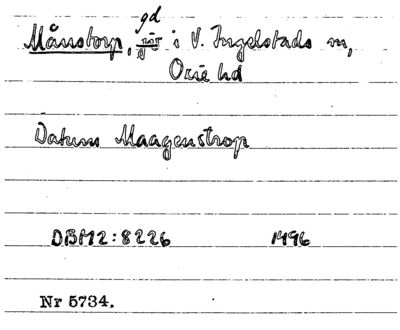 Månstorp, gd i V. Ingelstads sn,
Oxie hd
Datum Maagenstrop
DBM2:8226 1496
Nr 5734.